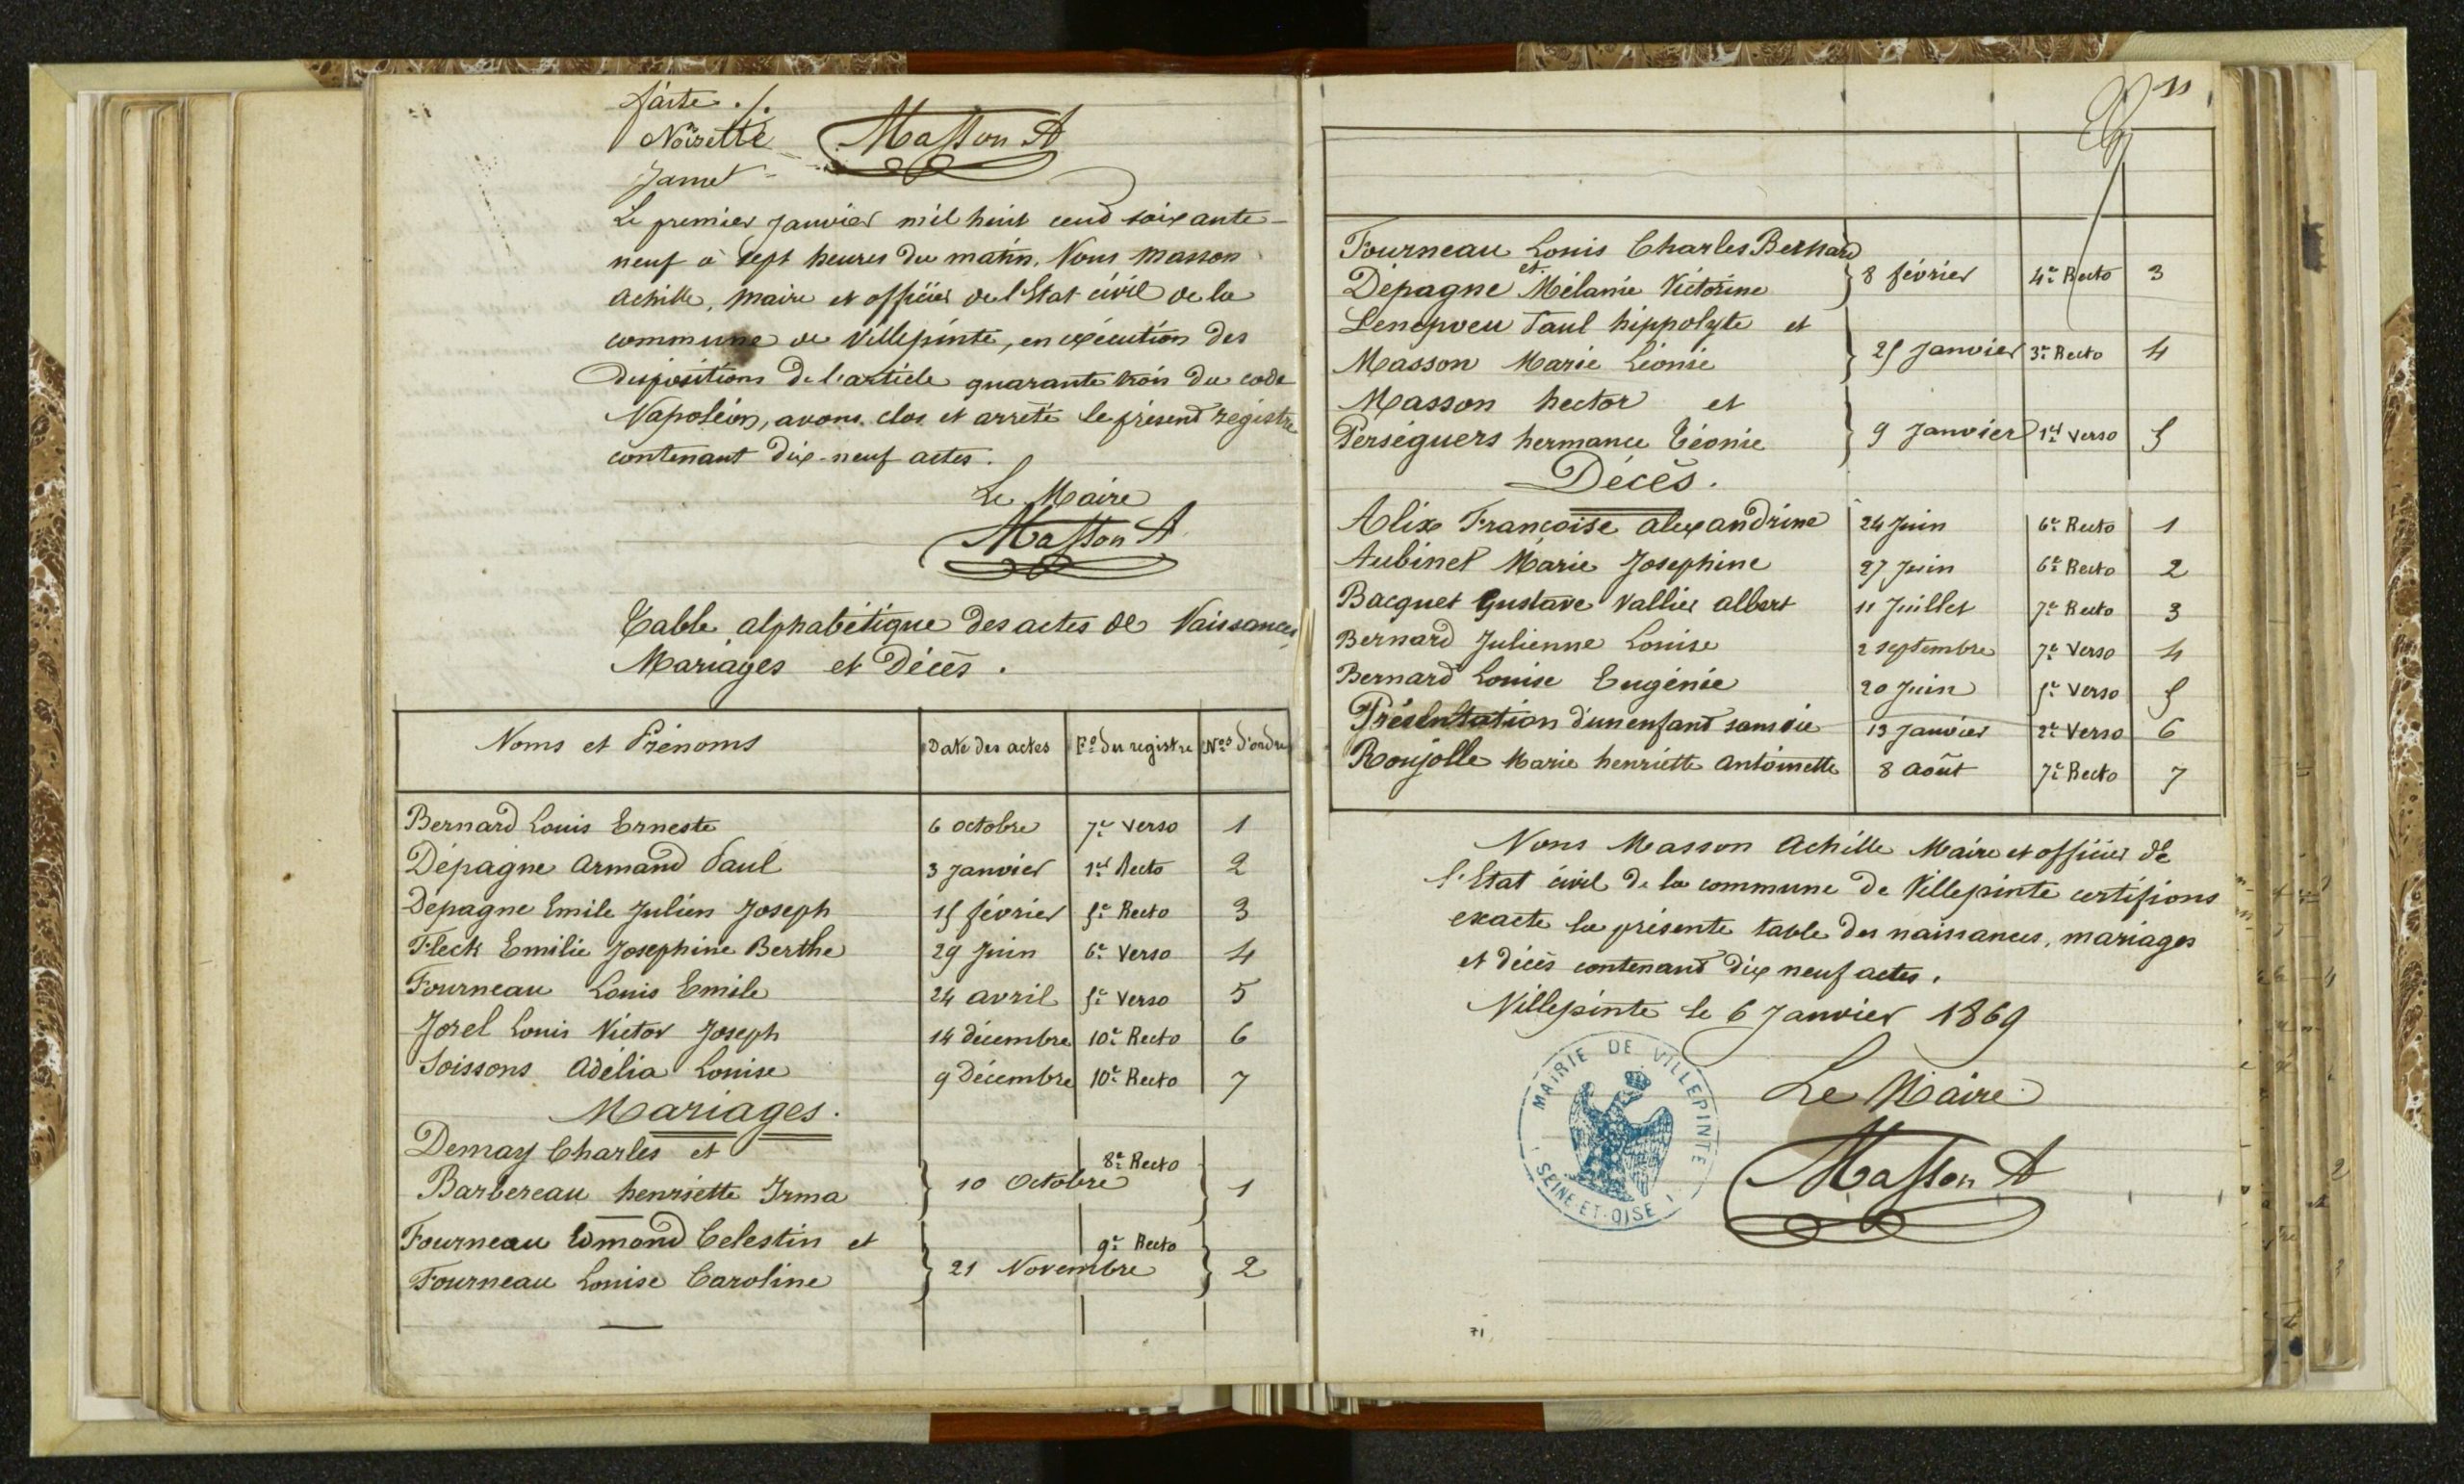 faite ./.
Noizette Masson A
Jamet
Le premier Janvier mil huit cend soixante-
neuf à sept heures du matin, Nous Masson
Achille, Maire et officier de l'Etat civil de la
commune de Villepinte, en exécution des
dispositions de l'article quarante trois du code
Napoléon, avons clos et arrêté le présend registre
contenant dix-neuf actes.
Le Maire
Masson A
Table alphabétique des actes de Naissances
Mariages et Décès.
Noms et Prénoms Date des actes Fo du registre Nos d'ordre
Bernard Louis Erneste 6 octobre 7e Verso 1
Dépagne Armand Paul 3 Janvier 1er Recto 2
Dépagne Emile Julien Joseph 15 février 5e Recto 3
Fleck Emilie Josephine Berthe 29 Juin 6e Verso 4
Fourneau Louis Emile 24 avril 5e Verso 5
Jorel Louis Victor Joseph 14 décembre 10e Recto 6
Soissons Adélia Louise 9 Décembre 10e Recto 7
Mariages.
Demay Charles et 8e Recto
Barbereau henriette Irma 10 Octobre 1
Fourneau Edmond Celestin et 9e Recto
Fourneau Louise Caroline 21 Novembre 2
11
Fourneau Louis Charles Bernard
et
Dépagne Mélanie Victorine 8 février 4e Recto 3
Lenepveu Paul hippolyte et
Masson Marie Léonie 25 Janvier 3e Recto 4
Masson hector et
Perséguers hermance Léonie 9 Janvier 1er Verso 5
Décès.
Alix Françoise alexandrine 24 Juin 6e Recto 1
Aubinet Marie Josephine 27 Juin 6e Recto 2
Bacquet Gustave Vallier albert 11 Juillet 7e Recto 3
Bernard Julienne Louise 2 septembre 7e Verso 4
Bernard Louise Eugénie 20 Juin 5e Verso 5
Présentation d'un enfant sans vie 13 Janvier 2e Verso 6
Roujolle Marie henriette Antoinette 8 Août 7e Recto 7
Nous Masson Achille Maire et officier de
l'Etat civil de la commune de Villepinte certifions
exacte la présente table des naissances, mariages
et décès contenand dix neuf actes.
Villepinte le 6 Janvier 1869
MAIRIE DE VILLEPINTE
SEINE-ET-OISE
Le Maire
Masson A
71